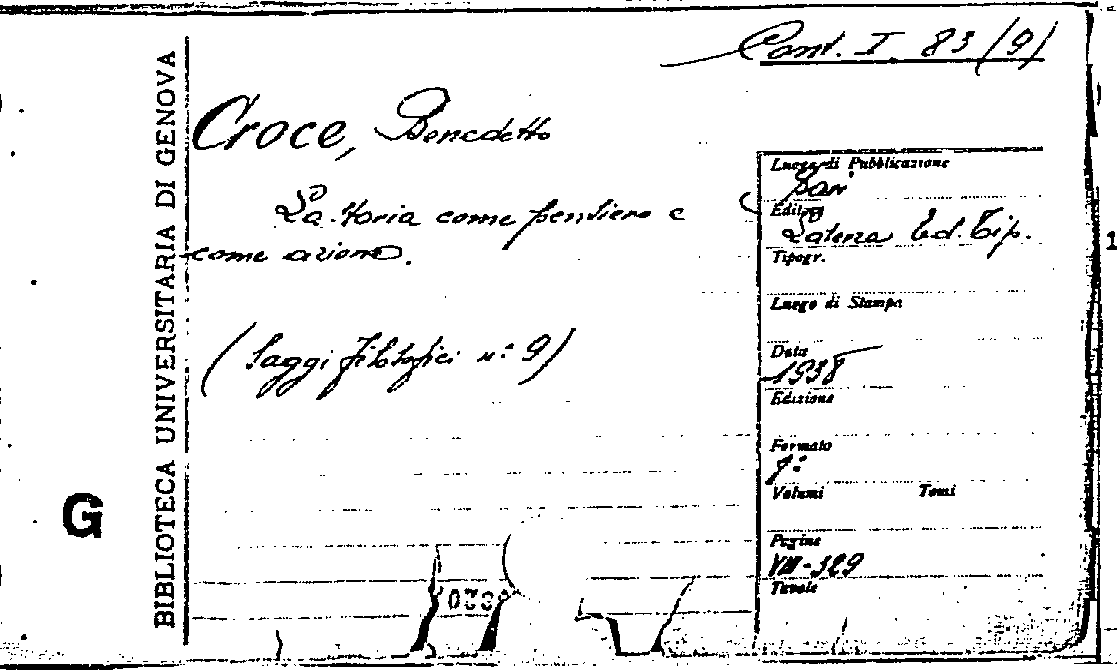 Cont. I 83 (9)
BIBLIOTECA UNIVERSITARIA DI GENOVA
Croce, Benedetto
La storia come pensiero e
come azione.
(Saggi filosofici n: 9)
Luogo di Pubblicazione
Bari
Editore
Laterza Ed. Tip.
Tipogr.
Luogo di Stampa
Data
1938
Edizione
Formato
8º
Volumi Tomi
Pagine
VIII-329
Tavole
G
1